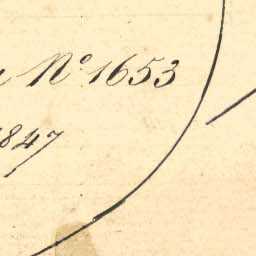 No 1653
1847